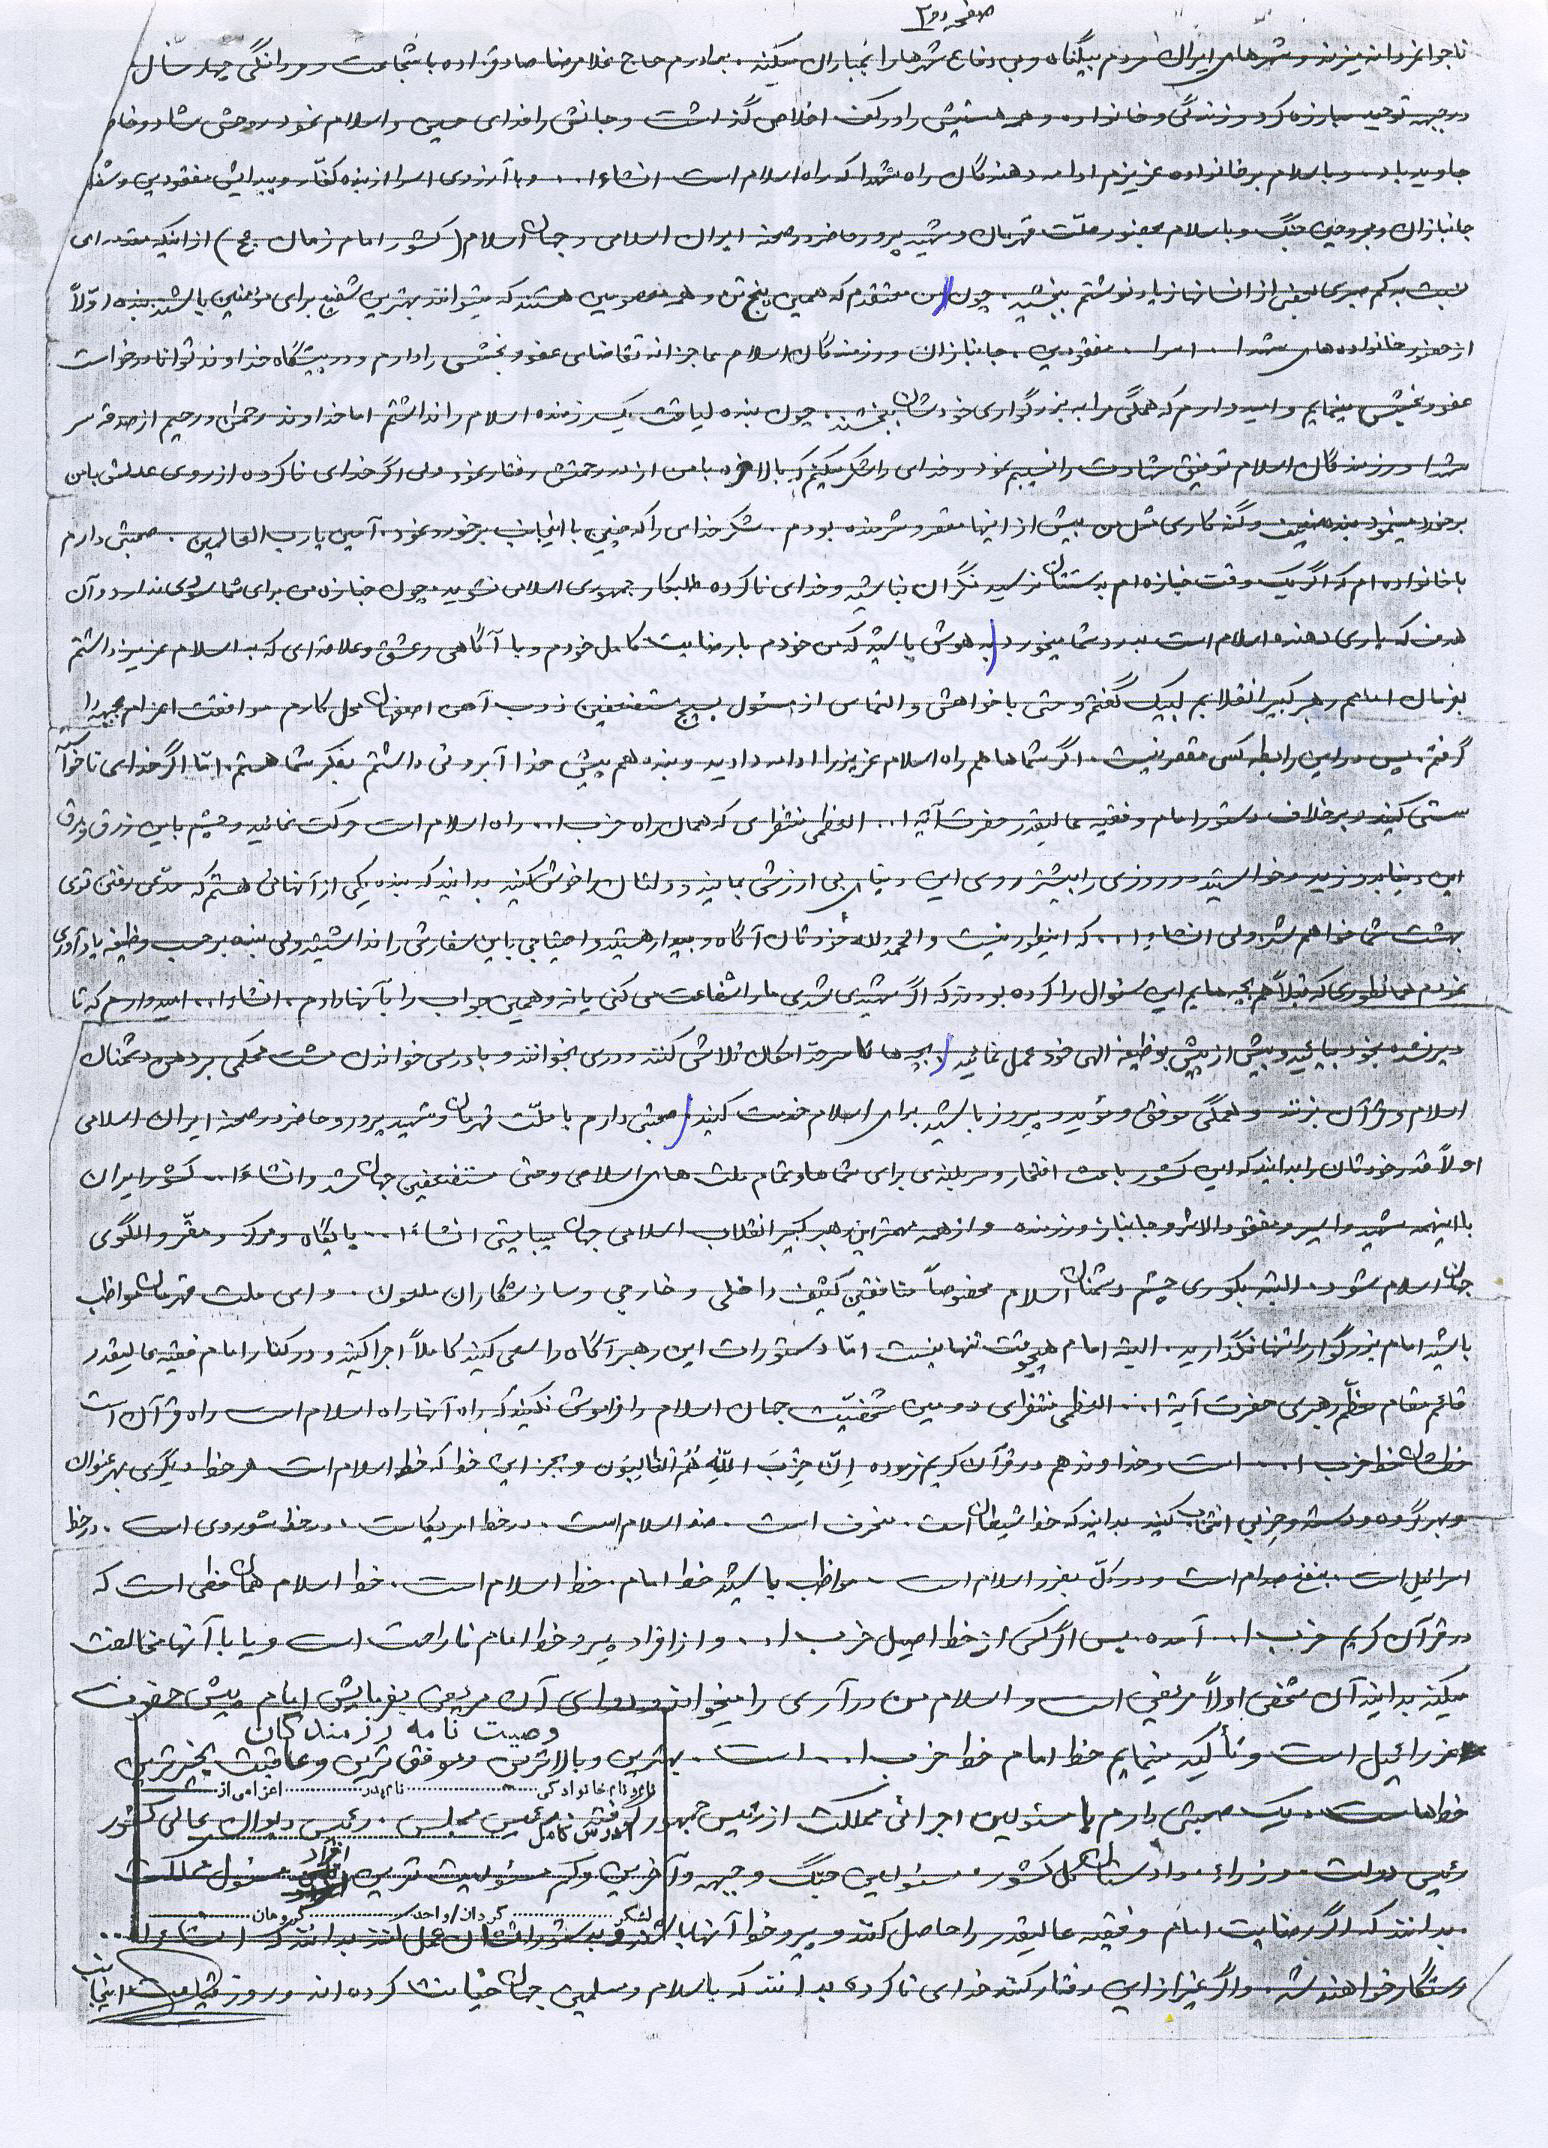 صفحه دوم
ناجوانمردانه میزند و شهرهای ایران مردم بیگناه و بی دفاع شهرها را بمباران میکند. برادرم حاج غلامرضا صادقزاده با شجاعت و مردانگی چهار سال
در جبهه توحید مبارزه کرد و زندگی و خانواده و همه هستیش را در کف اخلاص گذاشت و جانش را فدای حسین و اسلام نمود روحش شاد و
جاوید باد. و با سلام بر خانواده عزیزم ادامه دهندگان راه شهدا که راه اسلام است انشاءا... و با آرزوی اسرا از بند کفار و پیدایش مفقودین و شفا
جانبازان و مجروحین جنگ و با سلام بحضور ملّت قهرمان و شهید پرور و حاضر در صحنه ایران اسلامی و جهان اسلام (کشور امام زمان عج) از اینکه مقدمه ای
نسبت به کم صبری بعضی از انسانها زیاد نوشتم ببخشید. چون من معتقدم که همین پنج تن و همه معصومین هستند که میتوانند بهترین شفیع برای مؤمنین باشند بنده اوّلاً
از حضور خانواده های شهدا. اسرا. مفقودین. جانبازان و رزمندگان اسلام عاجزانه تقاضای عفو و بخشش را دارم و در پیشگاه خداوند توانا درخواست
عفو و بخشش مینمایم و امیدوارم که همگی مرا به بزرگواری خودشان ببخشند. چون بنده لیاقت یک رزمنده اسلام را نداشتم اما خداوند رحمان و رحیم از صدقه سر
شهدا و رزمندگان اسلام توفیق شهادت را نسیبم نمود و خدای را شکر میکنم که بالاخره با من از در رحمتش رفتار نمود ولی اگر خدای ناکرده از روی عدلش با من
برخورد مینمود بنده ضعیف و گنه کاری مثل من بیش از اینها مقصر و شرمنده بودم. شکر خدای را که چنین با اینجانب برخورد نمود. آمین یا رب العالمین. صحبتی دارم
با خانواده ام که اگر یک وقت جنازه ام بدستتان نرسید نگران نباشید و خدای ناکرده طلبکار جمهوری اسلامی نشوید. چون جنازه من برای شما سودی ندارد و آن
هدف که یاری دهنده اسلام است بدرد شما میخورد به هوش باشید که من خودم با رضایت کامل خودم و با آگاهی و عشق و علاقه ای که به اسلام عزیز داشتم
بفرمان امامم رهبر کبیر انقلابم لبیک گفتم و حتی با خواهش و التماس از مسئول بسیج مستضعفین ذوب آهن اصفهان محل کارم موافقت اعزام بجبهه را
گرفتم. پس در این رابطه کسی مقصر نیست. اگر شما ها هم راه اسلام عزیز را ادامه دادید و بنده هم پیش خدا آبروئی داشتم بفکر شما هستم. امّا اگر خدای ناخواسته
سستی کنید و برخلاف دستور امام و فقیه عالیقدر حضرت آیة ا... العظمی منتظری که همان راه حزب ا... راه اسلام است حرکت نمائید و چشم باین زرق و برق
این دنیا بدوزید و خواستید دو روزی را بیشتر روی این دنیای بی ارزش بمانید و دلتان را خوش کنید بدانید که بنده یکی از آنهائی هستم که مدّعی رفتن توی
بهشت شما خواهم شد ولی انشاءا... که اینطور نیست و الحمدلله خودتان آگاه و بیدار هستید و احتیاجی باین سفارش را نداشتید ولی بنده بر حسب وظیفه یادآوری
نمودم همانطوری که قبلاً هم بچه هایم این سئوال را کرده بودند که اگر شهیدی شدی ما را شفاعت می کنی یا نه و همین جواب را بآنها دادم. انشاءا... امیدوارم که تا
دیر نشده بخود بیائید و بیش از پیش بوظیفه الهی خود عمل نمائید بچه ها تا سر حدّ امکان تلاش کنند و درس بخوانند و با درس خواندن مشت محکمی بر دهن دشمنان
اسلام و قرآن بزنند و همگی موفق و مؤید و پیروز باشید برای اسلام خدمت کنید. صحبتی دارم با ملّت قهرمان و شهید پرور و حاضر در صحنه ایران اسلامی
اولاً قدر خودتان را بدانید که این کشور باعث افتخار و سربلندی برای شماها و تمام ملت های اسلامی و حتی مستضعفین جهان شد و انشاءا... کشور ایران
با اینهمه شهید و اسیر و مفقود الاثر و جانباز و رزمنده و از همه مهمتر این رهبر کبیر انقلاب اسلامی جهان میبایستی انشاءا... پایگاه و مرکز و مقّر و الگوی
جهان اسلام بشود. البته بکوری چشم دشمنان اسلام مخصوصاً منافقین کثیف داخلی و خارجی و سازشکاران ملعون. و ای ملت قهرمان مواظب
باشید امام بزرگوار را تنها نگذارید. البته امام هیچوقت تنها نیست امّا دستورات این رهبر آگاه را سعی کنید کاملاً اجرا کنید و در کنار امام فقیه عالیقدر
قائم مقام معظّم رهبری حضرت آیة ا... العظمی منتظری دومین شخصیّت جهان اسلام را فراموش نکنید که راه آنها راه اسلام است راه قرآن است
خطشان خط حزب ا... است و خداوند هم در قرآن کریم فرموده اِنّ حِزبَ اللّهِ هُمُ الغالِبُون و بجز این خط که خط اسلام است هر خط دیگری بهر عنوان
و بهر گروه و دسته و حزبی انتخاب کنید بدانید که خط شیطان است. منحرف است. ضد اسلام است. در خط امریکاست. در خط شوروی است. در خط
اسرائیل است. بنفع صدام است و در کلّ بضرر اسلام است. مواظب باشید خط امام. خط اسلام است. خط اسلام همان خطی است که
در قرآن کریم حزب ا... آمده. پس اگر کسی از خط اصیل حزب ا... و از افراد پیرو خط امام ناراحت است و یا با آنها مخالفت
میکند بدانید آن شخص اولاً مریض است و اسلام من درآری را میخواند و دوای آن مریض بفرمایش امام پیش حضرت
وصیت نامه رزمندگان
عزرائیل است و تأکید مینمایم خط امام خط حزب ا... است. بهترین و بالاترین و موفق ترین و عاقبت بخیر ترین
نام و نام خانوادگی ........ نام پدر ........ اعزامی از ........
خطهاست. یک صحبتی دارم با مسئولین اجرائی مملکت از رئیس جمهور گرفته. رئیس مجلس. رئیس دیوان عالی کشور
آدرس کامل ........
رئیس دولت. وزراء. دادستان کل کشور. مسئولین جنگ و جبهه و آخرین و کم مسئولیت ترین افراد مسئول مملکت
لشگر ........ گردان/واحد ........ گروهان ........
بدانند که اگر رضایت امام و فقیه عالیقدر را حاصل کنند و پیرو خط آنها باشند و بدستوراتشان عمل کنند بدانند که انشاءا...
رستگار خواهند شد. و اگر غیر از این رفتار کنند خدای ناکرده بدانند که باسلام و مسلمین جهان خیانت کرده اند و روز قیامت اینجانب